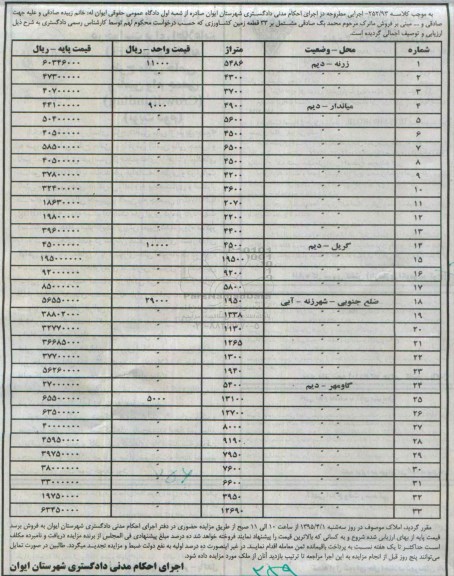 به موجب کلاسه ۲۵۲/۹۳- اجرایی مطروحه در اجرای احکام مدنی دادگستری شهرستان ایوان صادره از شعبه اول دادگاه عمومی حقوقی ایوان له: خانم زبیده صادقی و علیه جهت
صادقی و ... مبنی بر فروش ماترک مرحوم محمد بگ صادقی مشتمل بر ۳۳ قطعه زمین کشاورزی که حسب درخواست محکوم لهم توسط کارشناس رسمی دادگستری به شرح ذیل
ارزیابی و توصیف اجمالی گردیده است.
شماره محل - وضعیت متراژ قیمت واحد - ریال قیمت پایه - ریال
۱ زرنه - دیم ۵۴۸۶ ۱۱۰۰۰ ۶۰۳۴۶۰۰۰
۲ " " ۴۳۰۰ " ۴۷۳۰۰۰۰۰
۳ " " ۳۷۰۰ " ۴۰۷۰۰۰۰۰
۴ میاندار - دیم ۴۹۰۰ ۹۰۰۰ ۴۴۱۰۰۰۰۰
۵ " " ۵۶۰۰ " ۵۰۴۰۰۰۰۰
۶ " " ۴۵۰۰ " ۴۰۵۰۰۰۰۰
۷ " " ۶۵۰۰ " ۵۸۵۰۰۰۰۰
۸ " " ۴۵۰۰ " ۴۰۵۰۰۰۰۰
۹ " " ۴۲۰۰ " ۳۷۸۰۰۰۰۰
۱۰ " " ۳۶۰۰ " ۳۲۴۰۰۰۰۰
۱۱ " " ۲۰۷۰ " ۱۸۶۳۰۰۰۰
۱۲ " " ۲۲۰۰ " ۱۹۸۰۰۰۰۰
۱۳ " " ۴۴۰۰ " ۳۹۶۰۰۰۰۰
۱۴ گریل - دیم ۴۵۰۰ ۱۰۰۰۰ ۴۵۰۰۰۰۰۰
۱۵ " " ۱۹۵۰۰ " ۱۹۵۰۰۰۰۰۰
۱۶ " " ۹۲۰۰ " ۹۲۰۰۰۰۰۰
۱۷ " " ۵۸۰۰ " ۸۵۰۰۰۰۰۰
۱۸ ضلع جنوبی - شهرزنه - آبی ۱۹۵۰ ۲۹۰۰۰ ۵۶۵۵۰۰۰۰
۱۹ " " ۱۳۳۸ " ۳۸۸۰۲۰۰۰
۲۰ " " ۱۱۳۰ " ۳۲۷۷۰۰۰۰
۲۱ " " ۱۲۶۵ " ۳۶۶۸۵۰۰۰
۲۲ " " ۱۳۰۰ " ۳۷۷۰۰۰۰۰
۲۳ " " ۱۹۴۰ " ۵۶۲۶۰۰۰۰
۲۴ گاومهر - دیم ۵۴۰۰ " ۲۷۰۰۰۰۰۰
۲۵ " " ۱۳۱۰۰ ۵۰۰۰ ۶۵۵۰۰۰۰۰
۲۶ " " ۱۲۷۰۰ " ۶۳۵۰۰۰۰۰
۲۷ " " ۸۰۰۰ " ۴۰۰۰۰۰۰۰
۲۸ " " ۹۱۹۰ " ۴۵۹۵۰۰۰۰
۲۹ " " ۷۹۵۰ " ۳۹۷۵۰۰۰۰
۳۰ " " ۷۶۰۰ " ۳۸۰۰۰۰۰۰
۳۱ " " ۶۶۰۰ " ۳۳۰۰۰۰۰۰
۳۲ " " ۳۹۵۰ " ۱۹۷۵۰۰۰۰
۳۳ " " ۱۲۶۹۰ " ۶۳۴۵۰۰۰۰
مقرر گردید، املاک موصوف در روز سه‌شنبه ۱۳۹۵/۴/۱ از ساعت ۱۰ الی ۱۱ صبح از طریق مزایده حضوری در دفتر اجرای احکام مدنی دادگستری شهرستان ایوان به فروش برسد
قیمت پایه از بهای ارزیابی شده شروع و به کسانی که بالاترین قیمت را پیشنهاد نمایند فروخته خواهد شد ده درصد مبلغ پیشنهادی فی المجلس از برنده مزایده دریافت و نامبرده مکلف
است حداکثر تا یک هفته نسبت به پرداخت باقیمانده ثمن معامله اقدام نمایند. در غیر اینصورت ده درصد اولیه به نفع دولت ضبط و مزایده تجدید میگردد. طالبین در صورت تمایل
پنج روز قبل از انجام مزایده به این اجرا مراجعه تا ترتیب بازدید آنان از ملک مورد مزایده داده شود.
اجرای احکام مدنی دادگستری شهرستان ایوان
۲۵۹